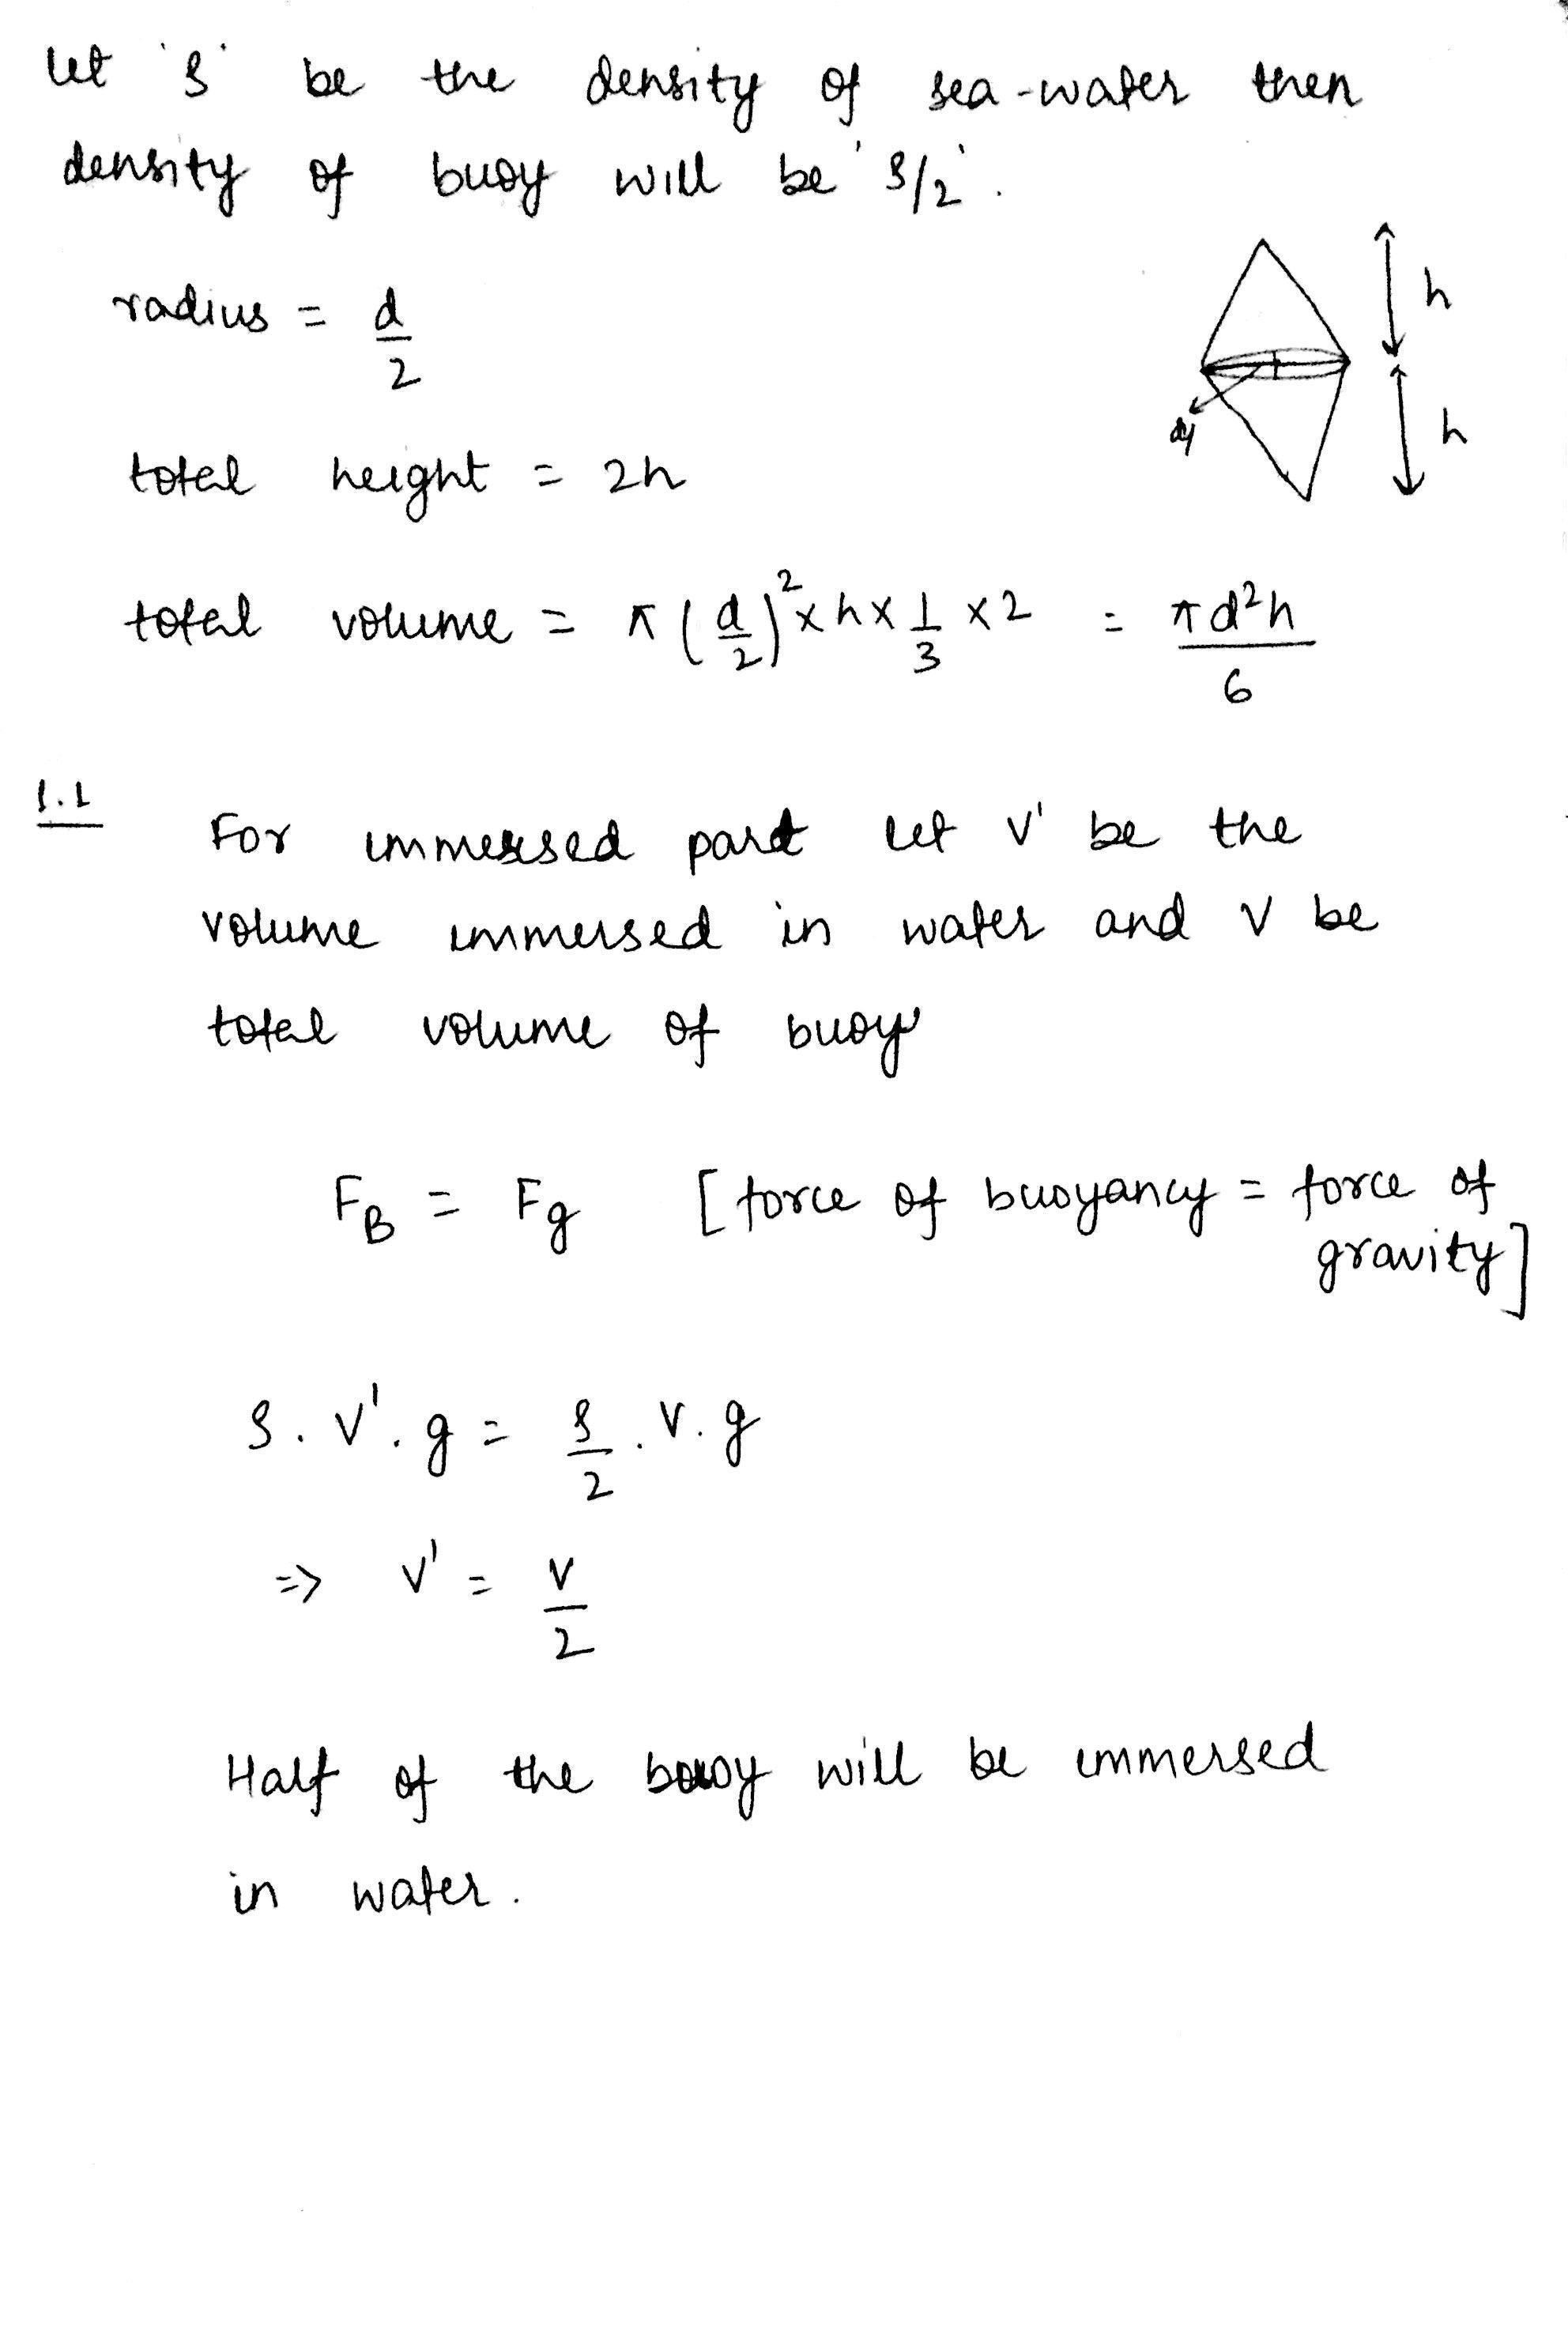 let 'ρ' be the density of sea-water then
density of buoy will be 'ρ/2'.
radius = d/2
h
total height = 2h
dy
h
total volume = π(d/2)² × h × 1/3 × 2 = πd²h/6
1.1
For immersed part let V' be the
volume immersed in water and V be
total volume of buoy
F_B = F_g [force of buoyancy = force of
gravity]
ρ.V'.g = ρ/2 .V.g
=> V' = V/2
Half of the buoy will be immersed
in water.